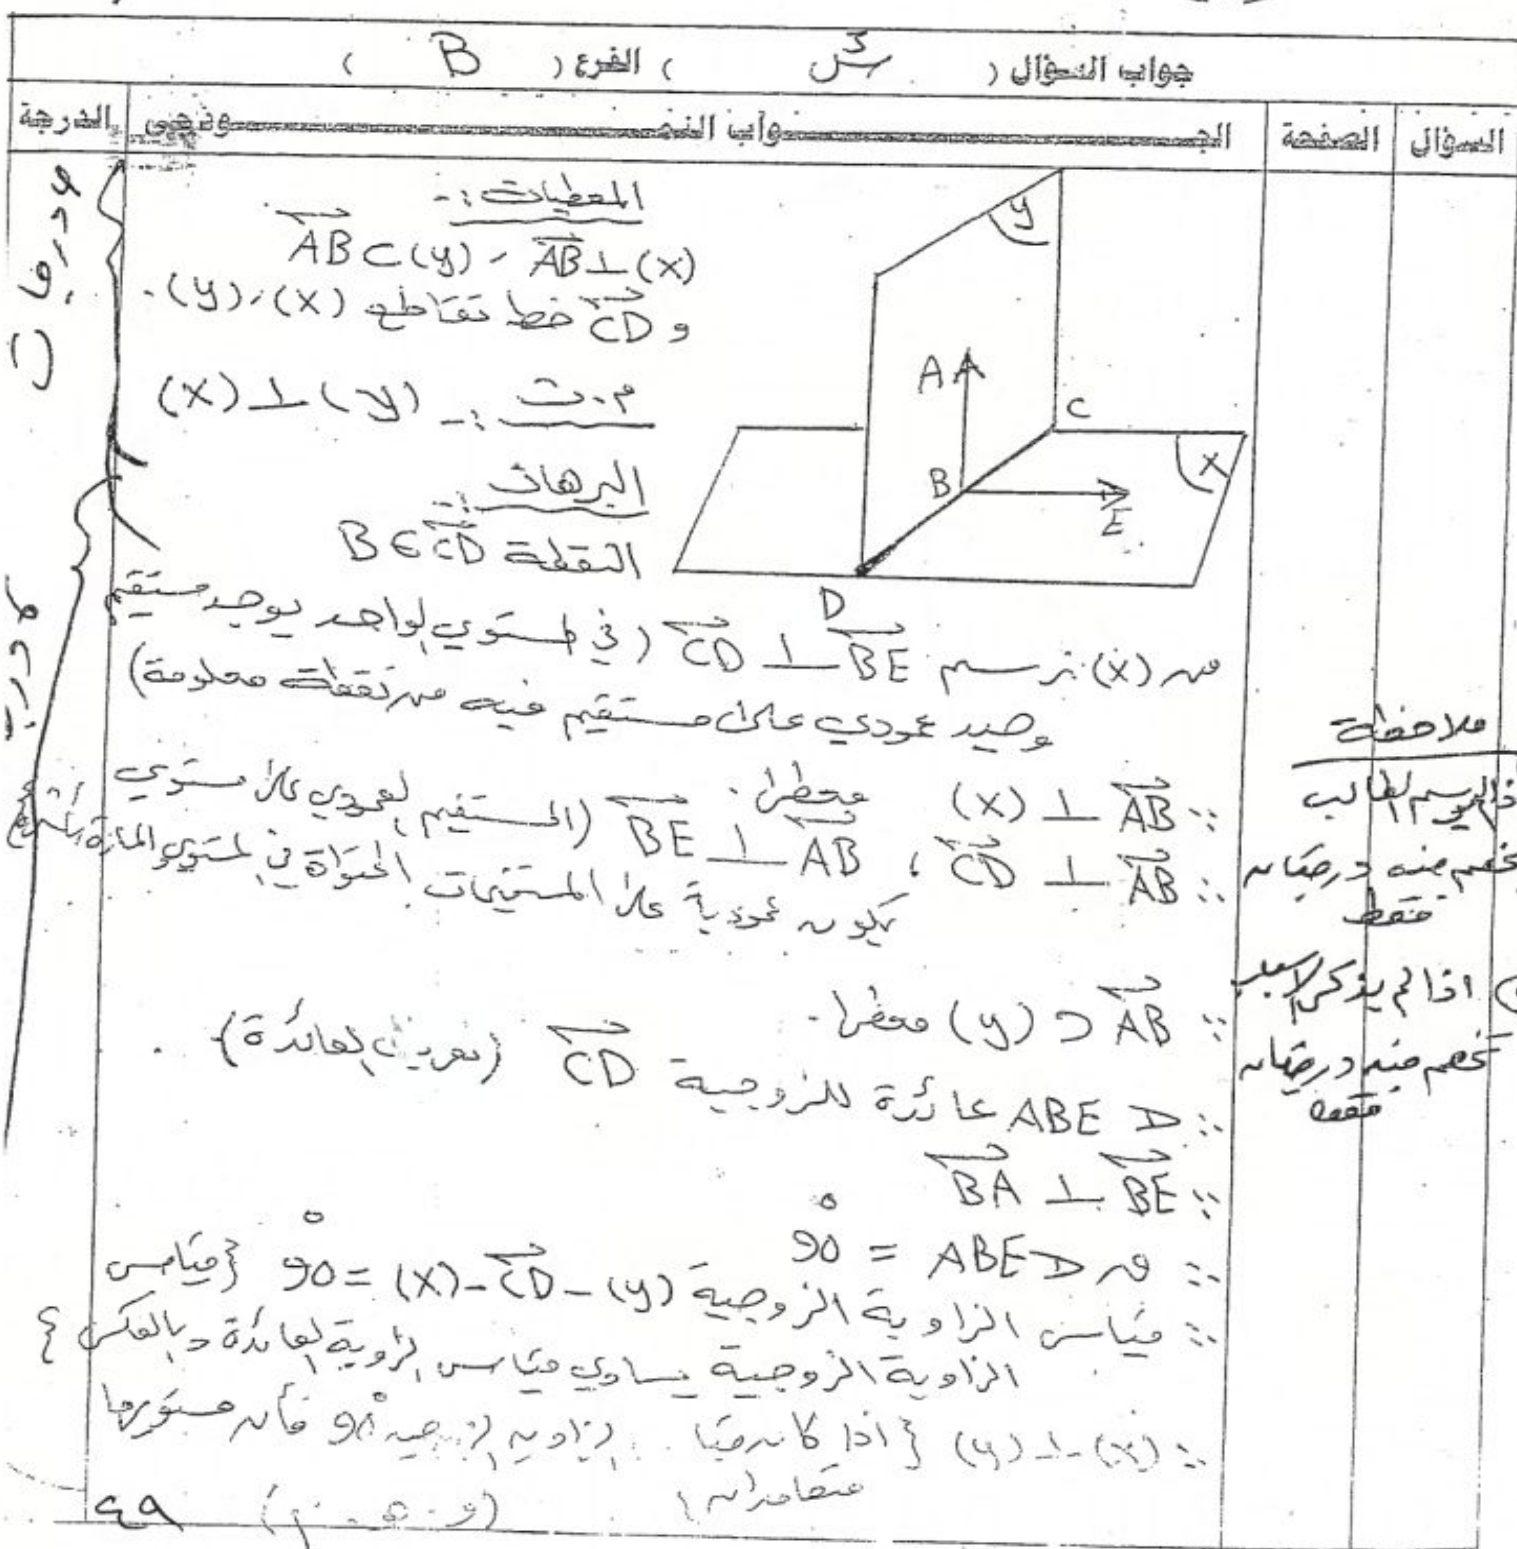 جواب السؤال ( س٣ ) الفرع ( B )
السؤال الصفحة الجواب النموذجي الدرجة
المعطيات :-
AB ⊂ (y) ، AB ⊥ (x)
و CD خط تقاطع (x) ، (y) .
م.ث :- (y) ⊥ (x)
البرهان :-
النقطة B ∈ CD
y
A
C
B
x
E
D
من (x) نرسم BE ⊥ CD (في المستوي الواحد يوجد مستقيم
وحيد عمودي على مستقيم فيه من نقطة معلومة)
∵ AB ⊥ (x) معطى .
∴ AB ⊥ CD ، AB ⊥ BE (المستقيم العمودي على مستوي
يكون عمودياً على المستقيمات المحتواة في المستوي والمارة
∵ AB ⊂ (y) معطى .
∴ ABE عائدة للزوجية CD (تعريف العائدة) .
∵ BE ⊥ BA
∴ ق ABE = 90°
∴ قياس الزاوية الزوجية (y) - CD - (x) = 90° {قياس
الزاوية الزوجية يساوي قياس الزاوية العائدة وبالعكس}
∴ (x) ⊥ (y) {اذا كان الزاوية الزوجية 90° فأن مستويها
متعامدان}
(و . هـ . م)
ملاحظة
لم يرسم الطالب
تخصم منه درجتان
فقط
اذا لم يذكر السبب
تخصم منه درجتان
فقط
درجات